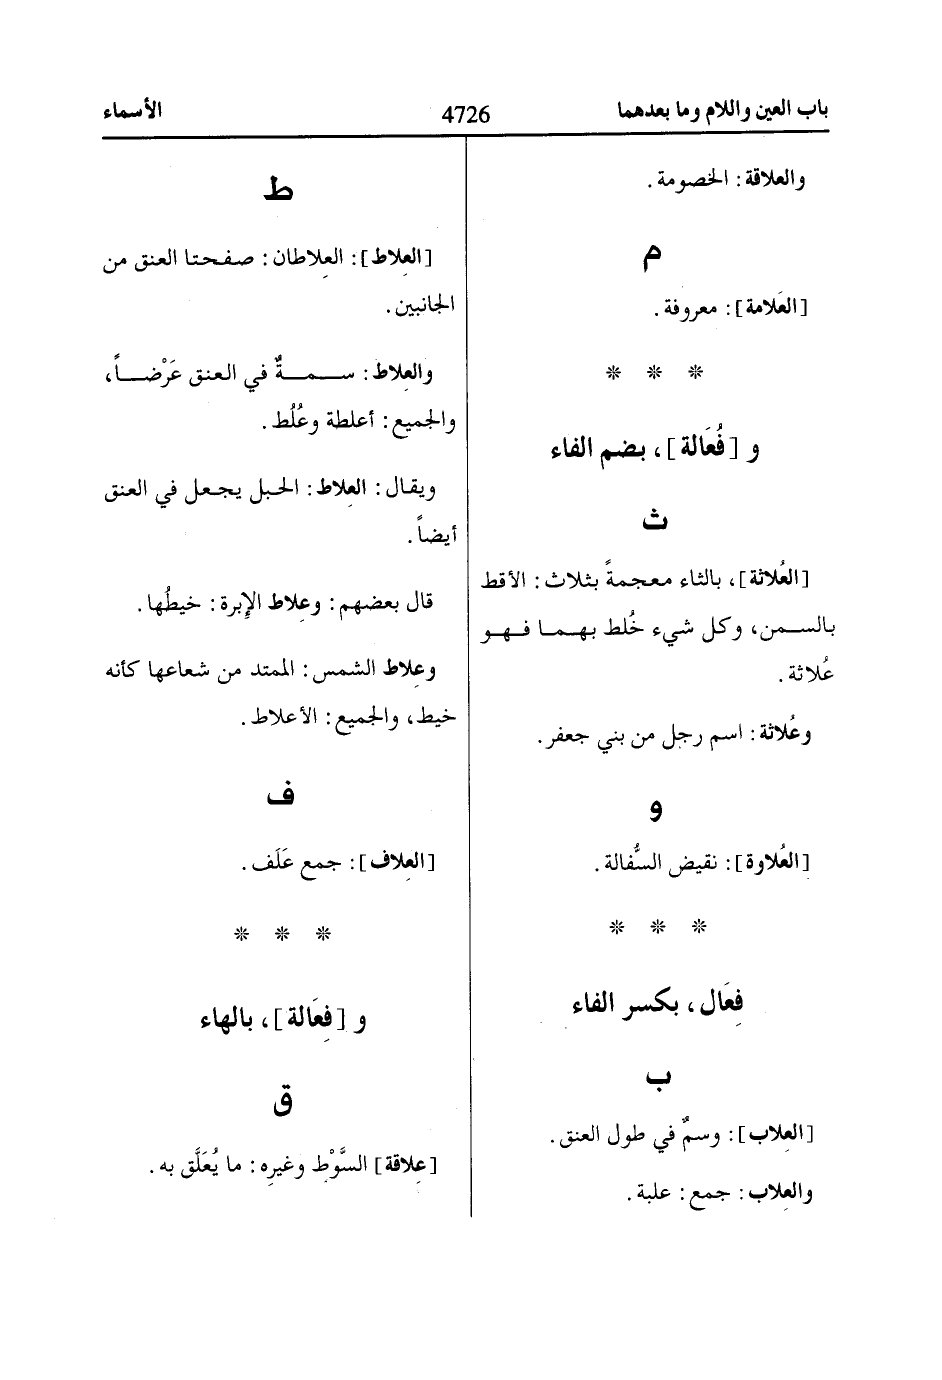 باب العين واللام وما بعدهما 4726 الأسماء
والعلاقة: الخصومة.
م
[العَلامة]: معروفة.
* * *
و [فُعَالة]، بضم الفاء
ث
[العُلاثة]، بالثاء معجمةً بثلاث: الأقط
بالسمن، وكل شيء خُلط بهما فهو
عُلاثة.
وعُلاثة: اسم رجل من بني جعفر.
و
[العُلاوة]: نقيض السُّفالة.
* * *
فِعَال، بكسر الفاء
ب
[العِلاب]: وسمٌ في طول العنق.
والعِلاب: جمع: علبة.
ط
[العِلاط]: العِلاطان: صفحتا العنق من
الجانبين.
والعِلاط: سمةٌ في العنق عَرْضاً،
والجميع: أعلطة وعُلُط.
ويقال: العِلاط: الحبل يجعل في العنق
أيضاً.
قال بعضهم: وعِلاط الإِبرة: خيطُها.
وعِلاط الشمس: الممتد من شعاعها كأنه
خيط، والجميع: الأعلاط.
ف
[العِلاف]: جمع عَلَف.
* * *
و [فِعَالة]، بالهاء
ق
[عِلاقة] السَّوْط وغيرِه: ما يُعَلَّق به.